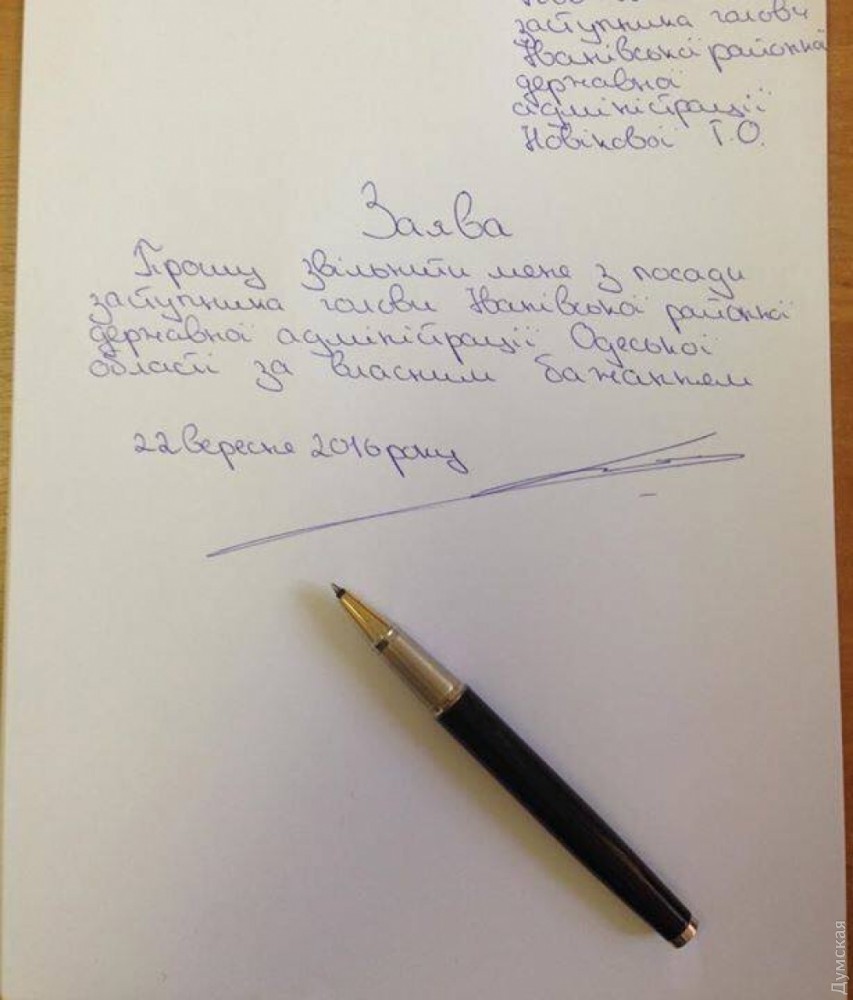 заступника голови
Іванівської районної
державної
адміністрації
Новікової Т.О.
Заява
Прошу звільнити мене з посади
заступника голови Іванівської районної
державної адміністрації Одеської
області за власним бажанням
22 вересня 2016 року
Думская